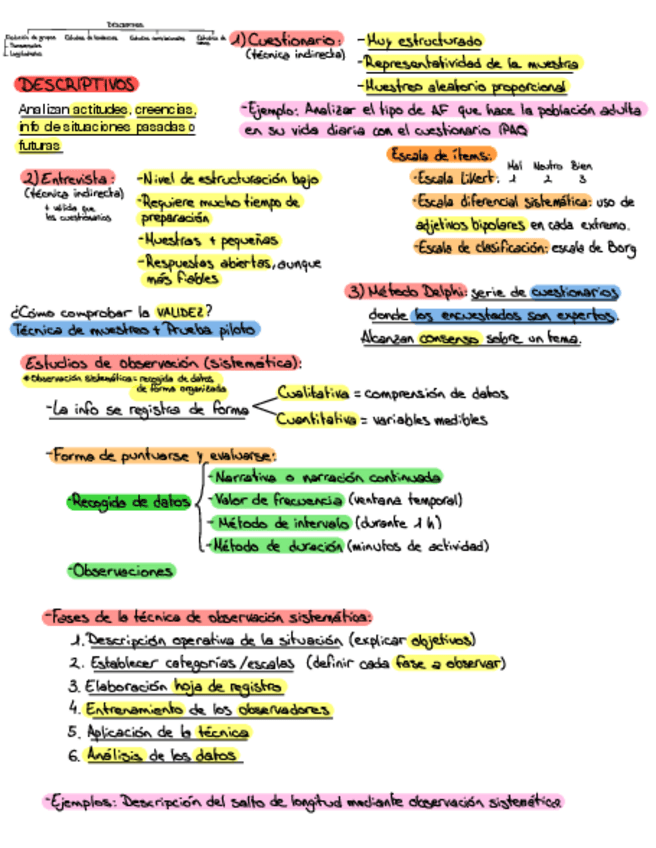 DESCRIPTIVOS
Evolución de grupos
- Transversales
- Longitudinales
Estudios de tendencias
Estudios correlacionales
Estudios de
1) Cuestionario:
(técnica indirecta)
-Muy estructurado
-Representatividad de la muestra
-Muestreo aleatorio proporcional
DESCRIPTIVOS
Analizan actitudes, creencias,
info de situaciones pasadas o
futuras
-Ejemplo: Analizar el tipo de AF que hace la población adulta
en su vida diaria con el cuestionario IPAQ
Escala de ítems:
Mal Neutro Bien
-Escala Likert: 1 2 3
-Escala diferencial sistemática: uso de
adjetivos bipolares en cada extremo.
-Escala de clasificación: escala de Borg
2) Entrevista:
(técnica indirecta)
+ válida que
los cuestionarios
-Nivel de estructuración bajo
-Requiere mucho tiempo de
preparación
-Muestras + pequeñas
-Respuestas abiertas, aunque
más fiables
3) Método Delphi: serie de cuestionarios
donde los encuestados son expertos.
Alcanzan consenso sobre un tema.
¿Cómo comprobar la VALIDEZ?
Técnica de muestreo + Prueba piloto
Estudios de observación (sistemática):
*Observación sistemática = recogida de datos
de forma organizada
-La info se registra de forma
Cualitativa = comprensión de datos
Cuantitativa = variables medibles
-Forma de puntuarse y evaluarse:
-Recogida de datos
-Narrativa o narración continuada
-Valor de frecuencia (ventana temporal)
-Método de intervalo (durante 1 h)
-Método de duración (minutos de actividad)
-Observaciones
-Fases de la técnica de observación sistemática:
1. Descripción operativa de la situación (explicar objetivos)
2. Establecer categorías/escalas (definir cada fase a observar)
3. Elaboración hoja de registro
4. Entrenamiento de los observadores
5. Aplicación de la técnica
6. Análisis de los datos
-Ejemplos: Descripción del salto de longitud mediante observación sistemática